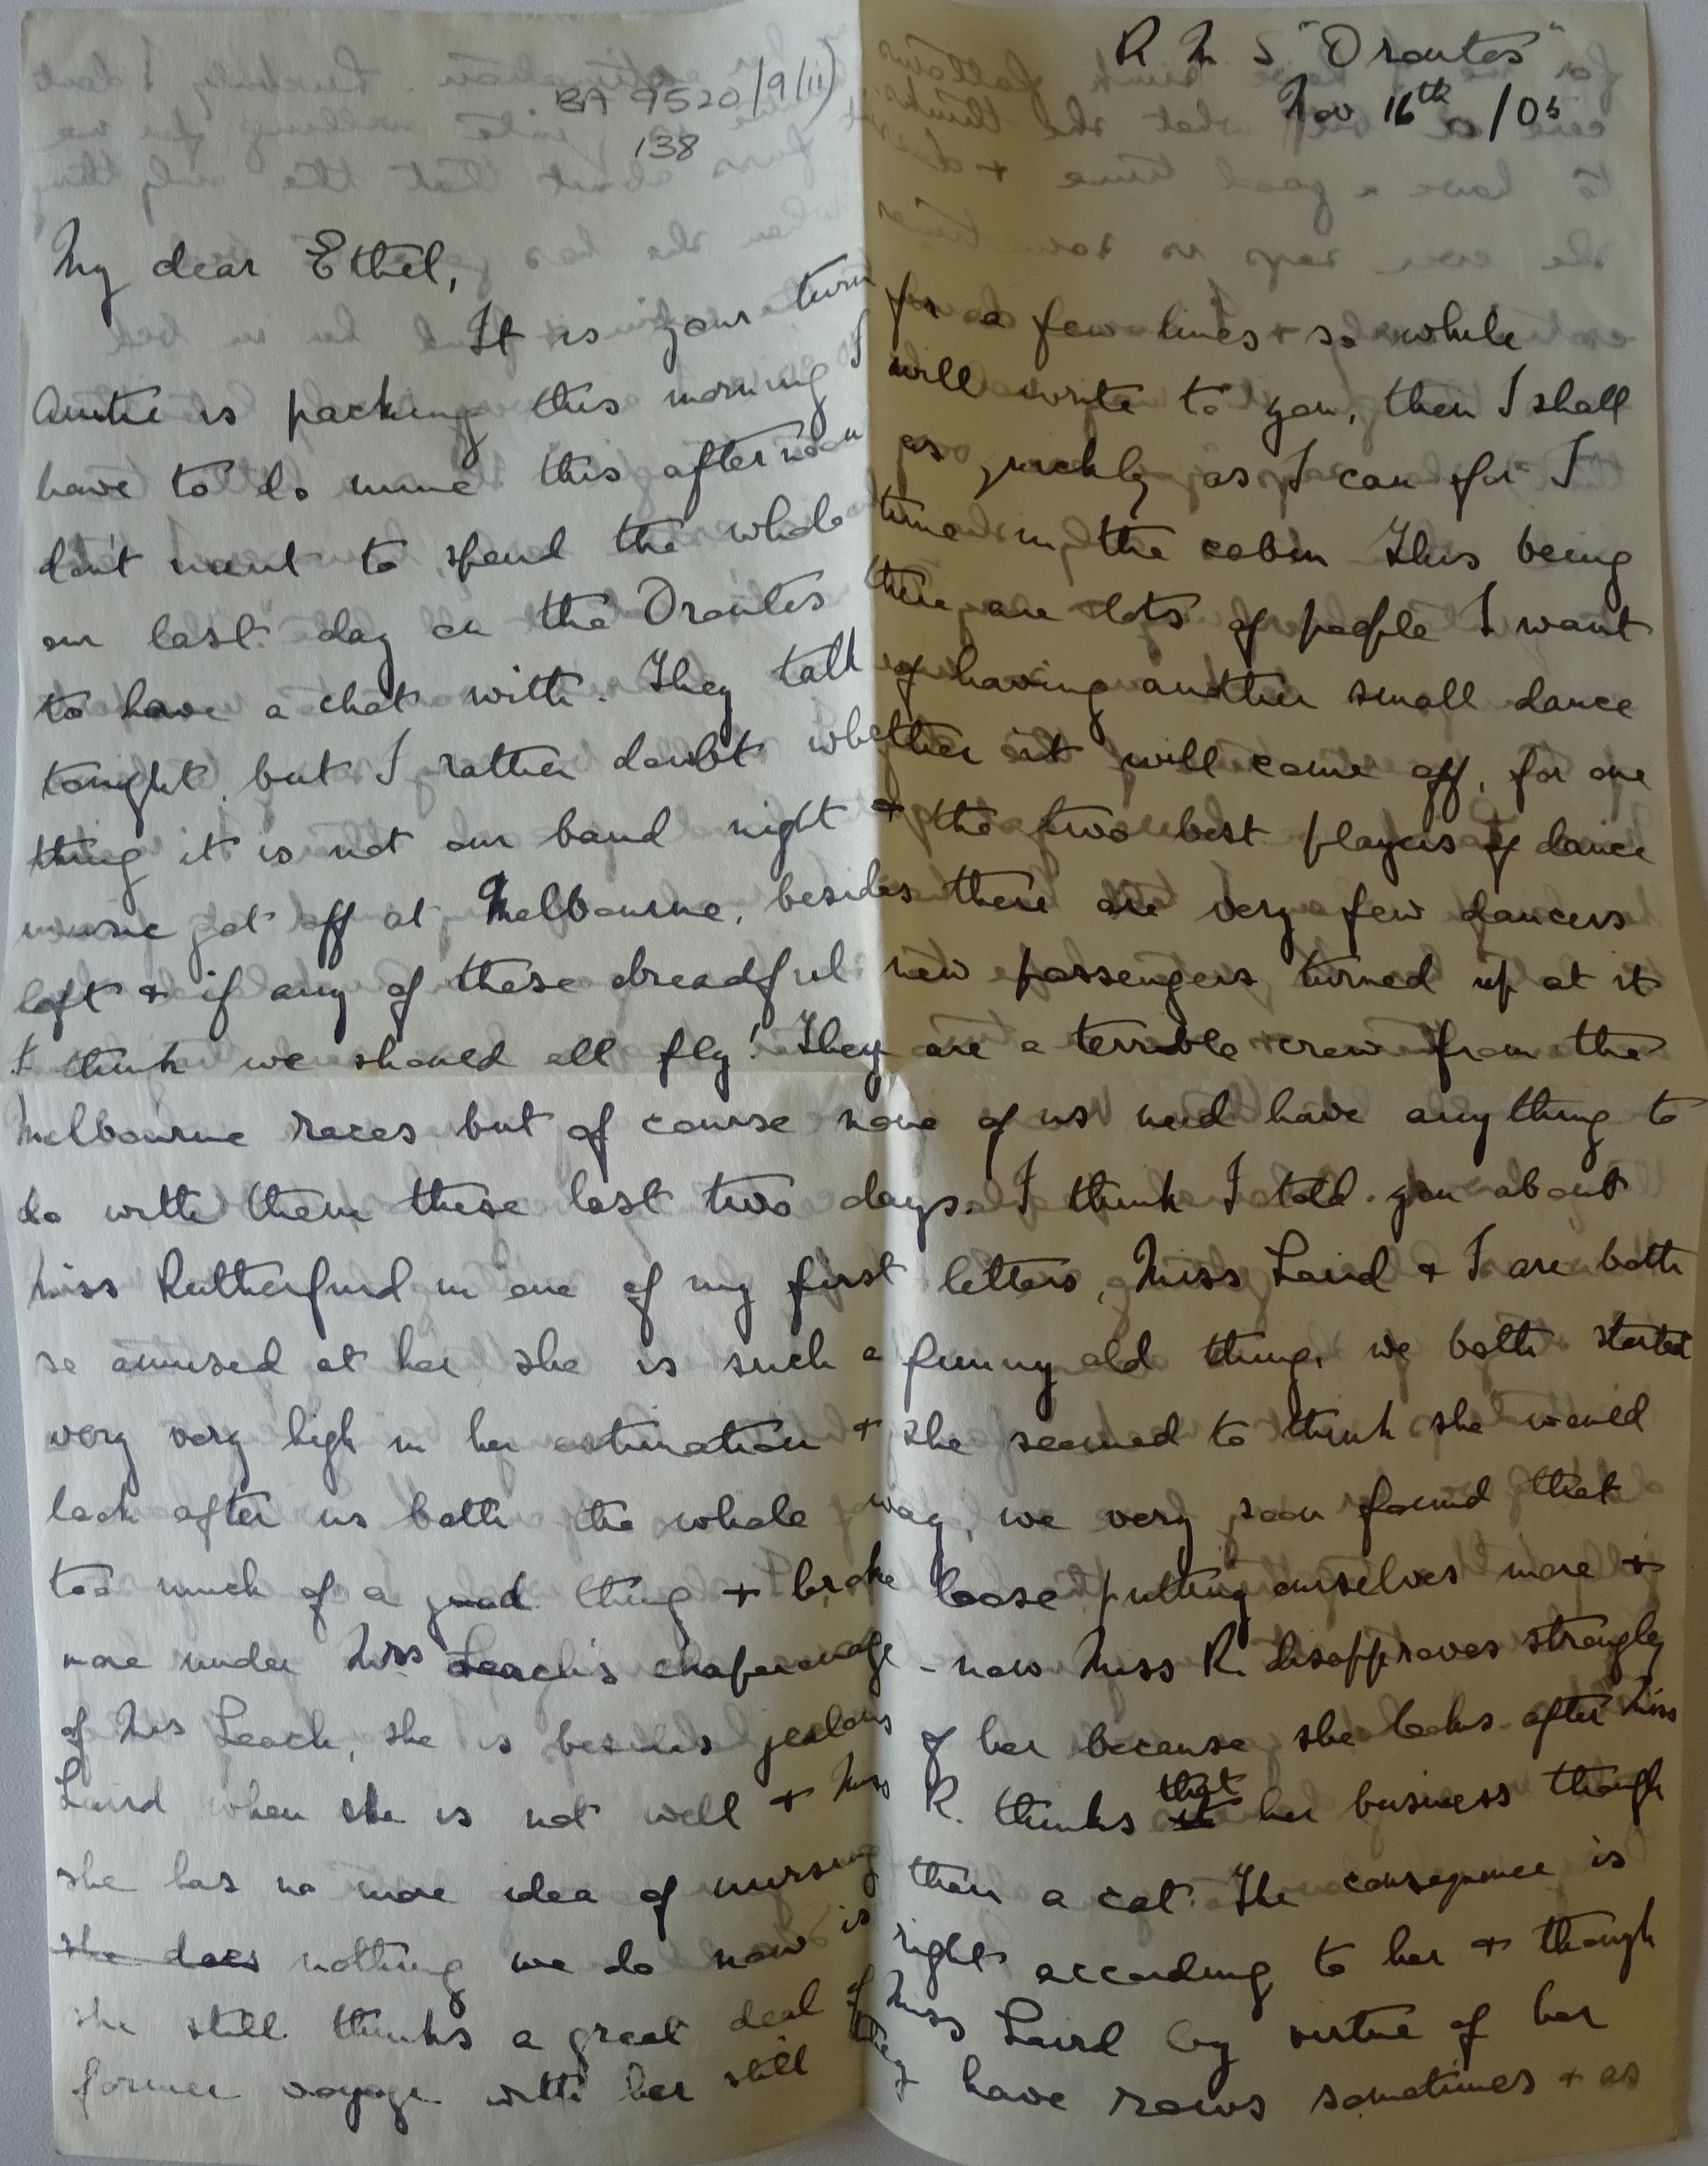 R M S "Orontes"
Nov 16th /05
BA 9520/9/11)
138
My dear Ethel,
It is your turn for a few lines & so while
Auntie is packing this morning I will write to you, then I shall
have to do mine this afternoon as quickly as I can for I
don't want to spend the whole time in the cabin This being
our last day on the Orontes there are lots of people I want
to have a chat with. They talk of having another small dance
tonight, but I rather doubt whether it will come off, for one
thing it is not our band night & the two best players of dance
music got off at Melbourne, besides there are very few dancers
left & if any of these dreadful new passengers turned up at it
I think we should all fly! They are a terrible crew from the
Melbourne races but of course none of us need have anything to
do with them these last two days. I think I told you about
Miss Rutherfurd in one of my first letters, Miss Laird & I are both
so amused at her she is such a funny old thing, we both started
very very high in her estimation & she seemed to think she would
look after us both the whole way, we very soon found that
too much of a good thing & broke loose putting ourselves more &
more under Mrs Leach's chaperonage - now Miss R. disapproves strongly
of Mrs Leach, she is besides jealous of her because she looks after Miss
Laird when she is not well & Miss R. thinks that her business though
she has no more idea of nursing than a cat. The consequence is
she does nothing we do now is right according to her & though
she still thinks a great deal of Miss Laird by virtue of her
former voyage with her still they have rows sometimes & as